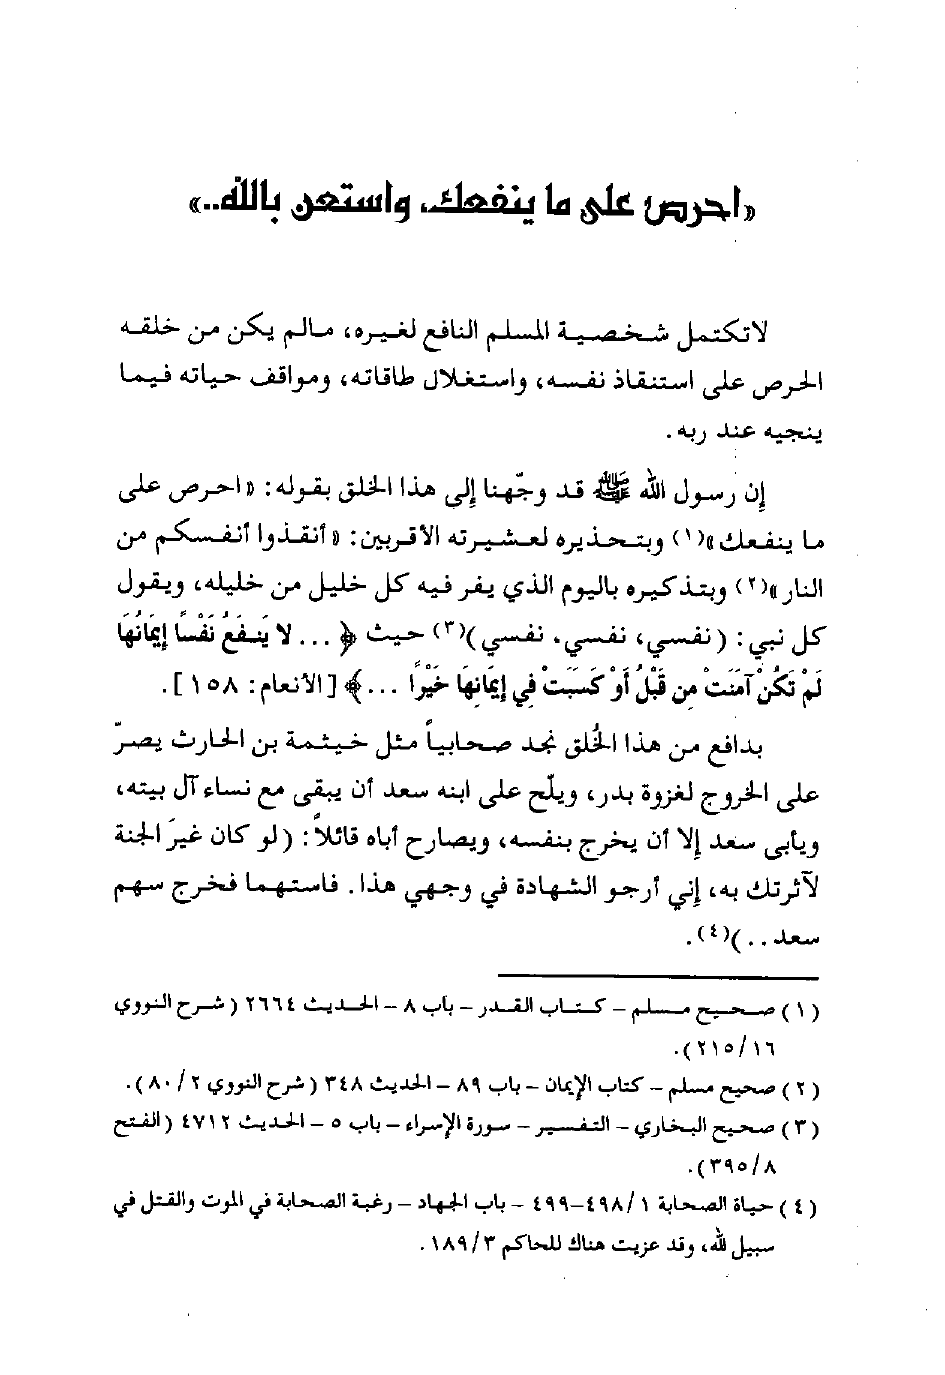 «احرص على ما ينفعك، واستعن بالله..»
لا تكتمل شخصية المسلم النافع لغيره، مالم يكن من خلقه
الحرص على استنقاذ نفسه، واستغلال طاقاته، ومواقف حياته فيما
ينجيه عند ربه.
إن رسول الله ﷺ قد وجّهنا إلى هذا الخلق بقوله: «احرص على
ما ينفعك»(١) وبتحذيره لعشيرته الأقربين: «أنقذوا أنفسكم من
النار»(٢) وبتذكيره باليوم الذي يفر فيه كل خليل من خليله، ويقول
كل نبي: (نفسي، نفسي، نفسي)(٣) حيث ﴿ ... لا يَنفَعُ نَفْسًا إِيمَانُهَا
لَمْ تَكُنْ آمَنَتْ مِن قَبْلُ أَوْ كَسَبَتْ فِي إِيمَانِهَا خَيْرًا ... ﴾ [الأنعام: ١٥٨].
بدافع من هذا الخُلق نجد صحابياً مثل خيثمة بن الحارث يصرّ
على الخروج لغزوة بدر، ويلّح على ابنه سعد أن يبقى مع نساء آل بيته،
ويأبى سعد إلا أن يخرج بنفسه، ويصارح أباه قائلاً: (لو كان غيرَ الجنة
لآثرتك به، إني أرجو الشهادة في وجهي هذا. فاستهما فخرج سهم
سعد..)(٤).
(١) صحيح مسلم – كتاب القدر – باب ٨ – الحديث ٢٦٦٤ (شرح النووي
١٦/٢١٥).
(٢) صحيح مسلم – كتاب الإيمان – باب ٨٩ – الحديث ٣٤٨ (شرح النووي ٢/٨٠).
(٣) صحيح البخاري – التفسير – سورة الإسراء – باب ٥ – الحديث ٤٧١٢ (الفتح
٨/٣٩٥).
(٤) حياة الصحابة ١/٤٩٨–٤٩٩ – باب الجهاد – رغبة الصحابة في الموت والقتل في
سبيل لله، وقد عزيت هناك للحاكم ٣/١٨٩.